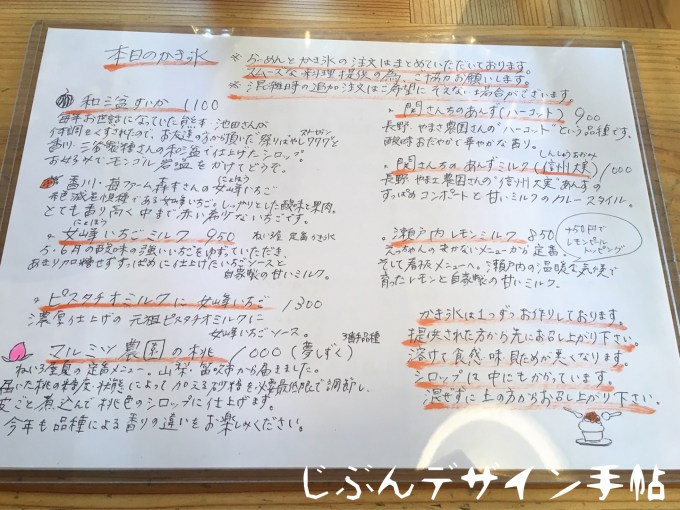 本日のかき氷
※らーめんとかき氷の注文はまとめていただいております。
スムーズな料理提供の為、ご協力お願いします。
※混雑時の追加注文はご希望にそえない場合がございます
和三盆すいか 1100
毎年お世話になっていた熊本 池田さんが
体調をくずされたので、お友達の
香川・三谷製糖さんの和三盆で仕上げたシロップ。
お好みでモンゴル岩塩をかけてどうぞ。
香川・苺ファーム森本さんの女峰いちご
にょほう
色減老恒種である女峰いちご。しっかりとした酸味と果肉。
とても香り高く中まで赤い希少ないちごです。
にょほう
女峰いちごミルク 950 ねいろ屋 定番かき氷
5・6月の酸味の強いいちごをゆずっていただき
あまり加糖せず、すっぱめに仕上げたいちごソースと
自家製の甘いミルク。
ピスタチオミルクに 女峰いちご 1300
濃厚仕上げの元祖ピスタチオミルクに
女峰いちごソース。
3番手品種
マルミツ農園の桃 1000 (夢しずく)
ねいろ屋夏の定番メニュー。山梨・笛吹市から届きました。
届いた桃の糖度・状態によって加える砂糖を必要最低限で調節し、
皮ごと煮込んで桃色のシロップに仕上げます。
今年も品種による香りの違いをお楽しみください。
関さんちのあんず(ハーコット) 900
長野・やま工農園さんの"ハーコット"という品種です。
酸味おだやかで華やかな香り。
しんしゅうおおみ
関さんちのあんずミルク(信州大実) 1000
長野・やま工農園さんの"信州大実"あんずの
すっぱめコンポートと甘いミルクのカレースタイル。
瀬戸内レモンミルク 850
+50円で
レモンピール
トッピング
えっちゃんのまかないメニューから定番、
そして看板メニューへ。瀬戸内の温暖な気候で
育ったレモンと自家製の甘いミルク。
かき氷は1つずつお作りしております。
提供された方から先にお召し上がり下さい。
溶けて食感・味・見ためが悪くなります。
シロップは中にもかかっています。
混ぜずに上の方からお召し上がり下さい。
じぶんデザイン手帖